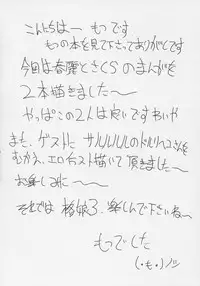 こんにちはー もっです
もっの本を見て下さってありがとです
今回は春麗とさくらのまんがを
2本描きました〜
やっぱこの2人は良いですねぃや
また、ゲストに サルルルルのドルリヘスさんを
むかえ、エロイラスト描いて頂きました〜
お楽しみに〜
それでは 格娘3、楽しんで下さいね〜
もっでした
(・も・)ノシ